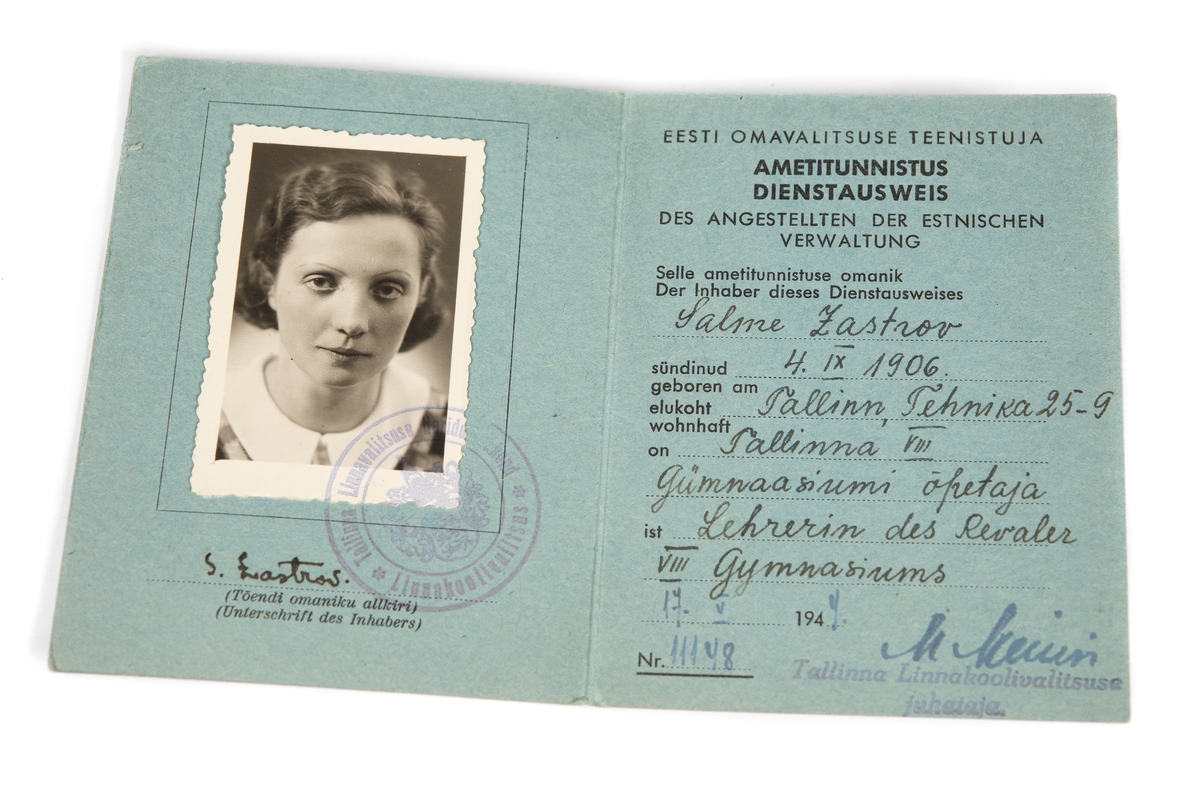 Tallinna Linnavalitsuse Haridusosakond
* Linnakoolivalitsus *
S. Zastrov.
(Tõendi omaniku allkiri)
(Unterschrift des Inhabers)
EESTI OMAVALITSUSE TEENISTUJA
AMETITUNNISTUS
DIENSTAUSWEIS
DES ANGESTELLTEN DER ESTNISCHEN
VERWALTUNG
Selle ametitunnistuse omanik
Der Inhaber dieses Dienstausweises
Salme Zastrov
sündinud 4. IX 1906.
geboren am
elukoht Tallinn, Tehnika 25-9
wohnhaft
on Tallinna VIII
Gümnaasiumi õpetaja
ist Lehrerin des Revaler
VIII Gymnasiums
17. V 194
Nr. 11148
Tallinna Linnakoolivalitsuse
juhataja.